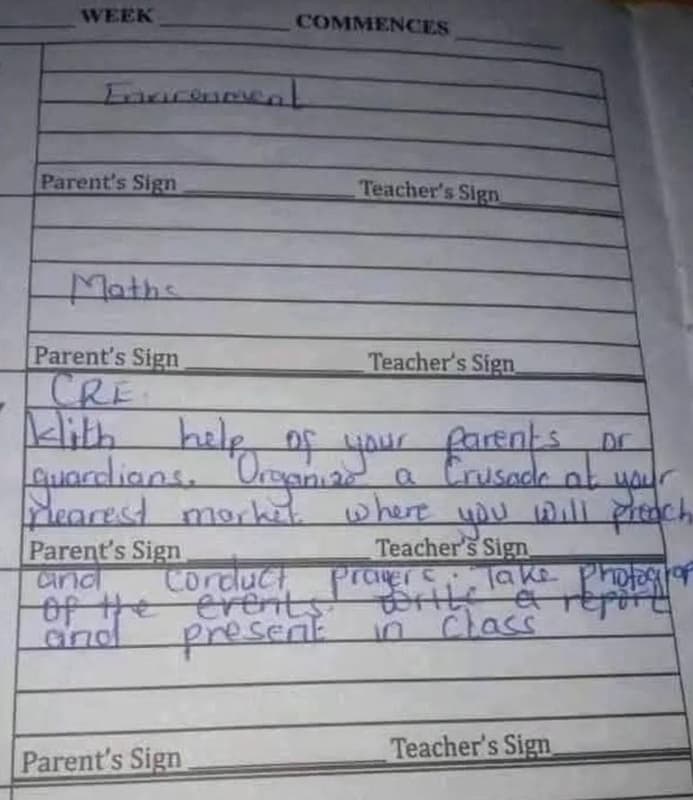 WEEK COMMENCES
Environment
Parent's Sign Teacher's Sign
Maths
Parent's Sign Teacher's Sign
CRE
With help of your parents or
guardians. Organize a Crusade at your
nearest market where you will preach
Parent's Sign Teacher's Sign
and Conduct Prayers. Take Photograp
of the events. Write a report
and present in Class
Parent's Sign Teacher's Sign